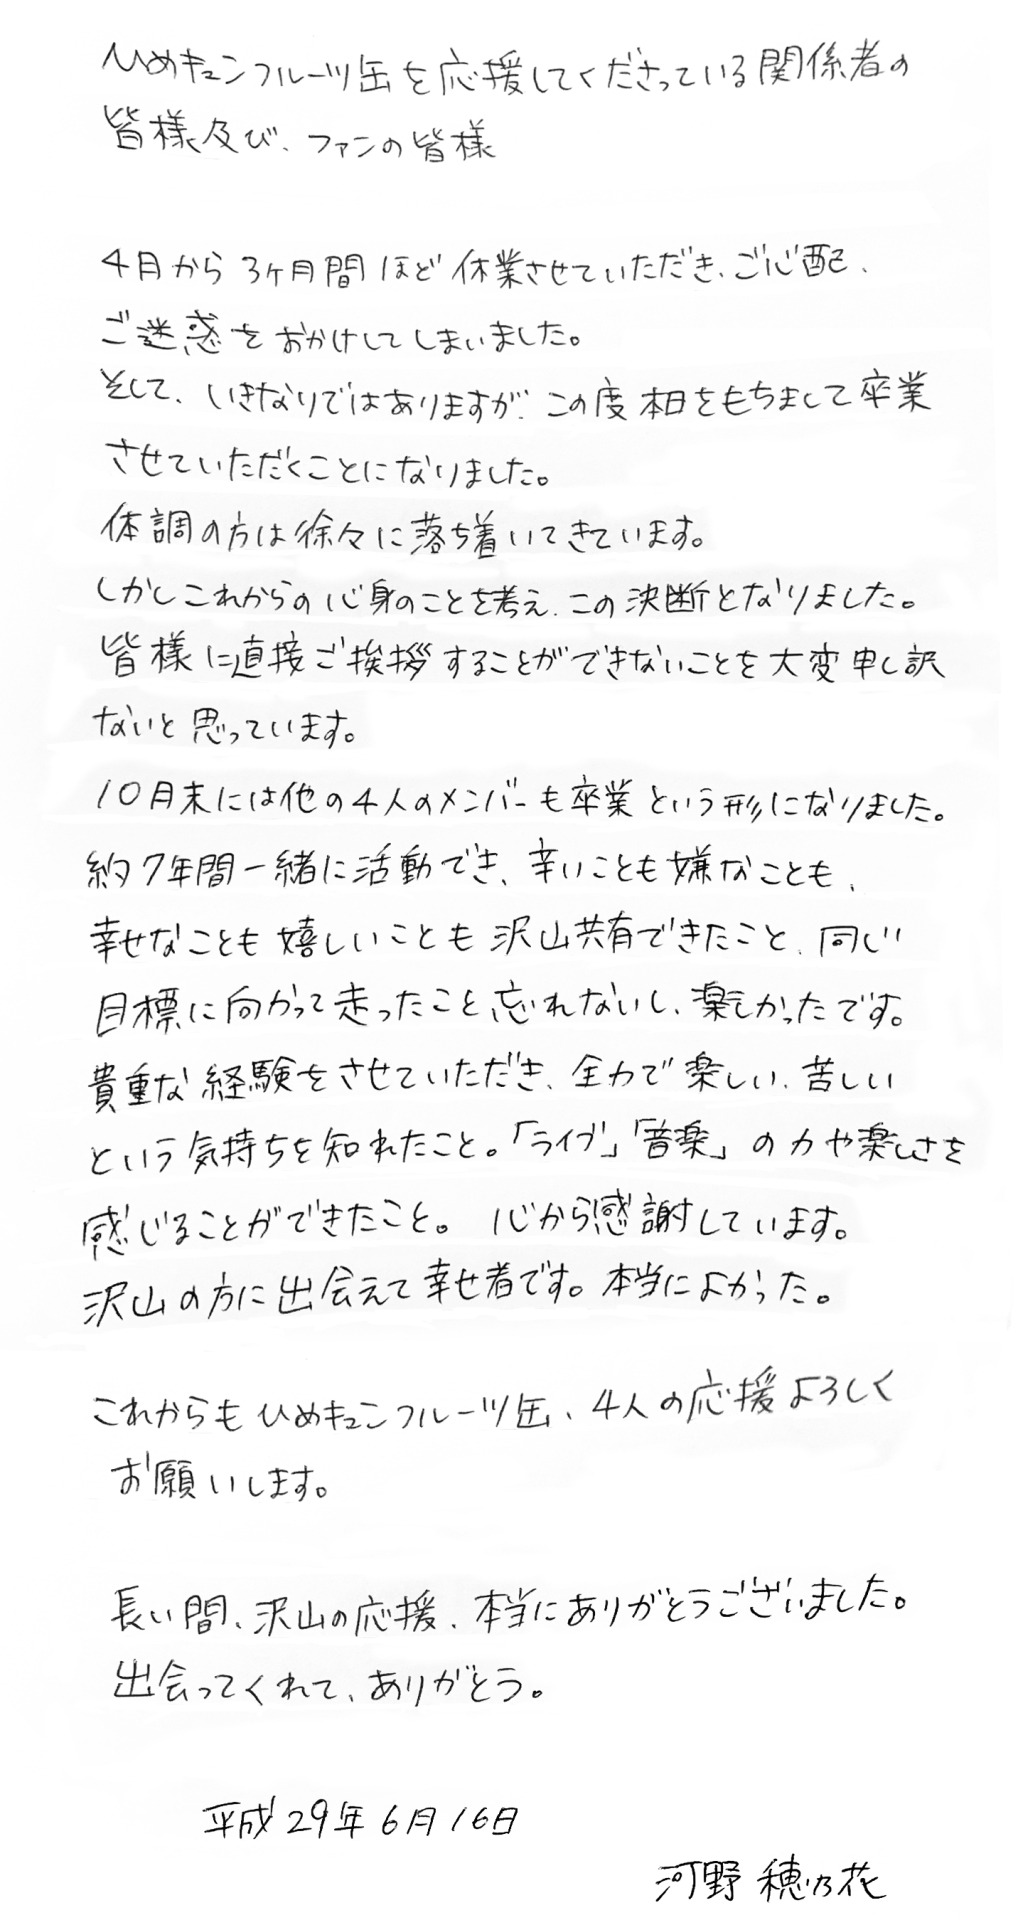 ひめキュンフルーツ缶を応援してくださっている関係者の
皆様及び、ファンの皆様
4月から3ヶ月間ほど休業させていただき、ご心配、
ご迷惑をおかけしてしまいました。
そして、いきなりではありますが、この度本日をもちまして卒業
させていただくことになりました。
体調の方は徐々に落ち着いてきています。
しかしこれからの心身のことを考え、この決断となりました。
皆様に直接ご挨拶することができないことを大変申し訳
ないと思っています。
10月末には他の4人のメンバーも卒業という形になりました。
約7年間一緒に活動でき、辛いことも嫌なことも、
幸せなことも嬉しいことも沢山共有できたこと、同じ
目標に向かって走ったこと、忘れないし、楽しかったです。
貴重な経験をさせていただき、全力で楽しい、苦しい
という気持ちを知れたこと。「ライブ」「音楽」の力や楽しさを
感じることができたこと。心から感謝しています。
沢山の方に出会えて幸せ者です。本当によかった。
これからもひめキュンフルーツ缶、4人の応援よろしく
お願いします。
長い間、沢山の応援、本当にありがとうございました。
出会ってくれて、ありがとう。
平成29年6月16日
河野 穂乃花